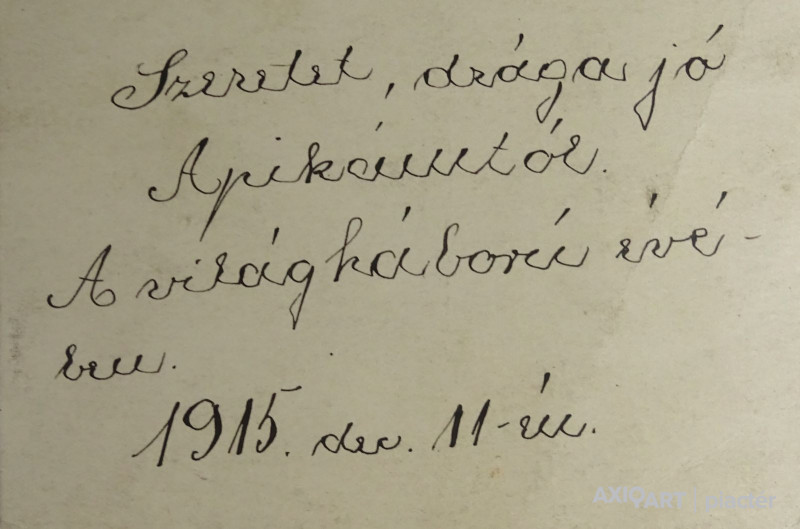 Szeretet, drága jó
Apikámtól.
A világháború évé-
ben.
1915. dec. 11-én.
AXIOART plaster